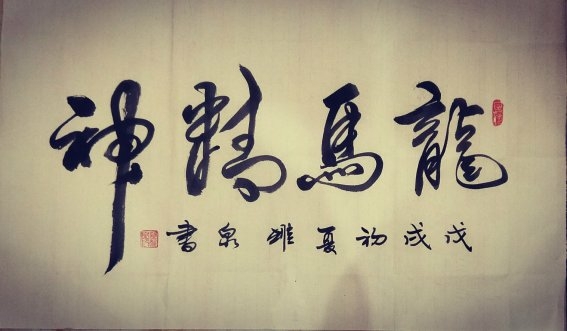 龍馬精神
戊戌初夏雄泉書